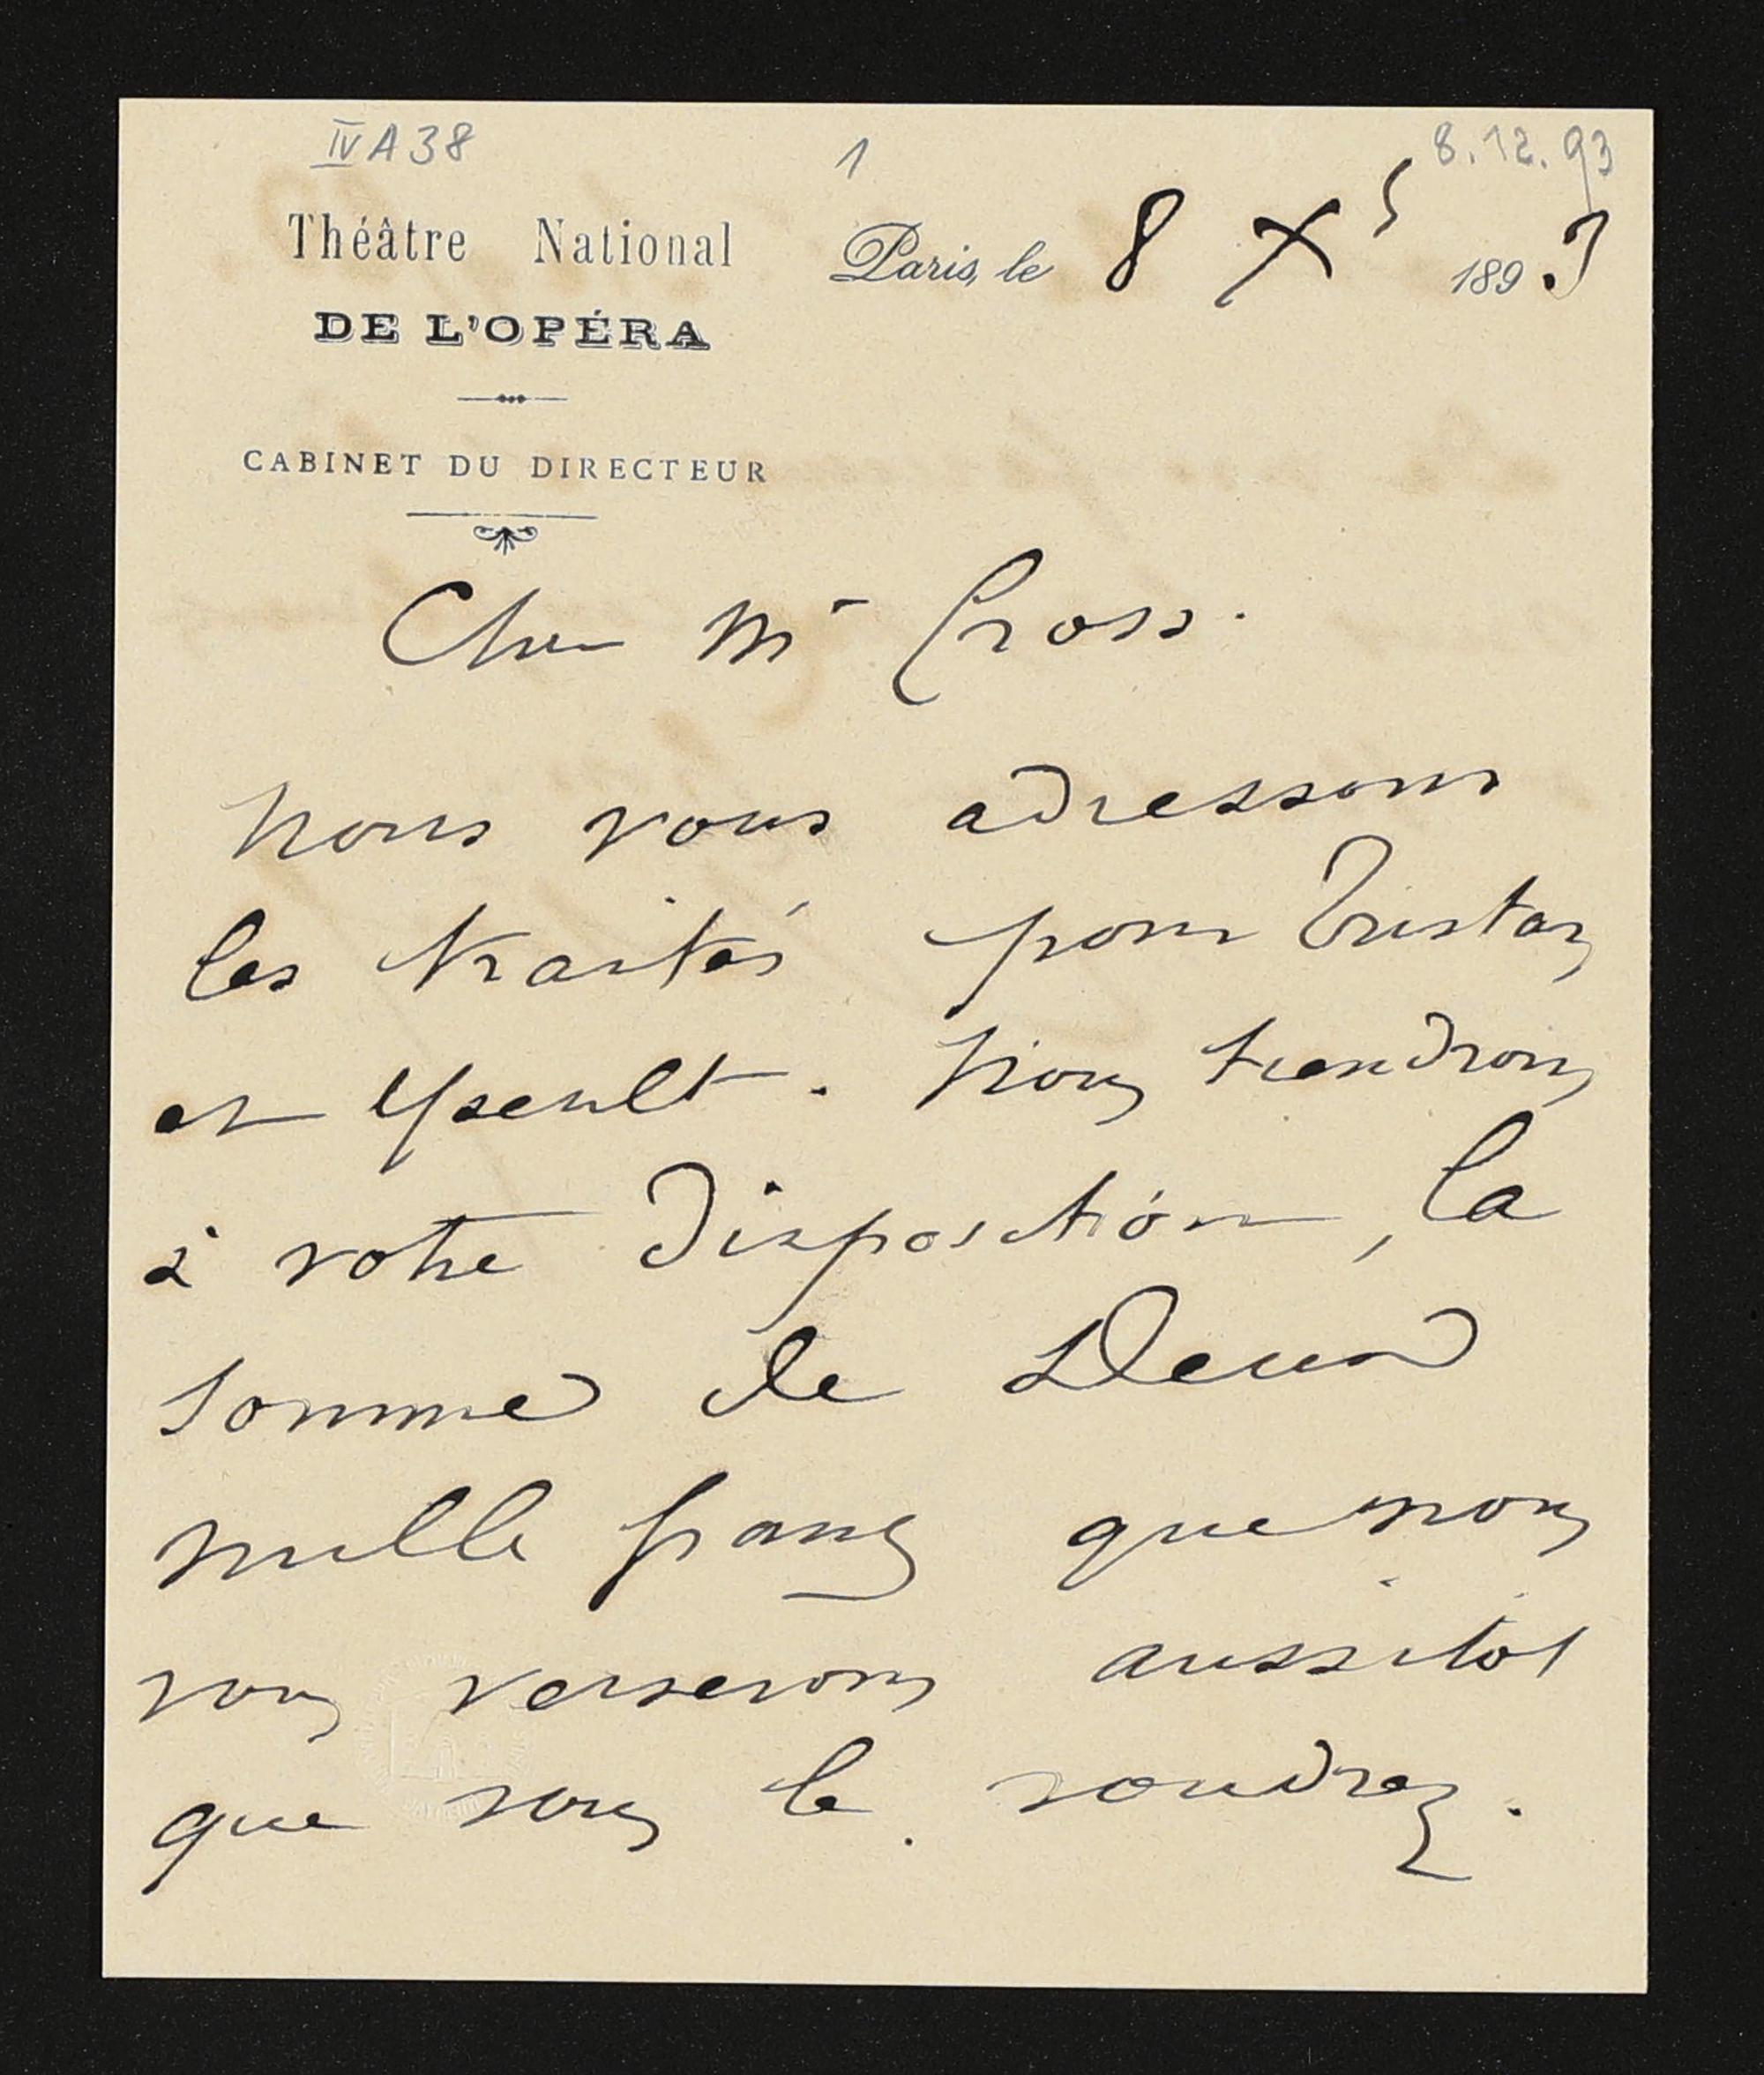 IV A 38 1 8.12.93
Théâtre National
DE L'OPÉRA
CABINET DU DIRECTEUR
Paris, le 8 Xs 1893
Cher Mr Gross.
Nous vous adressons
les traités pour Tristan
et Yseult. Nous tiendrons
à votre disposition, la
somme de Deux
mille francs que nous
vous verserons aussitot
que vous le voudrez.